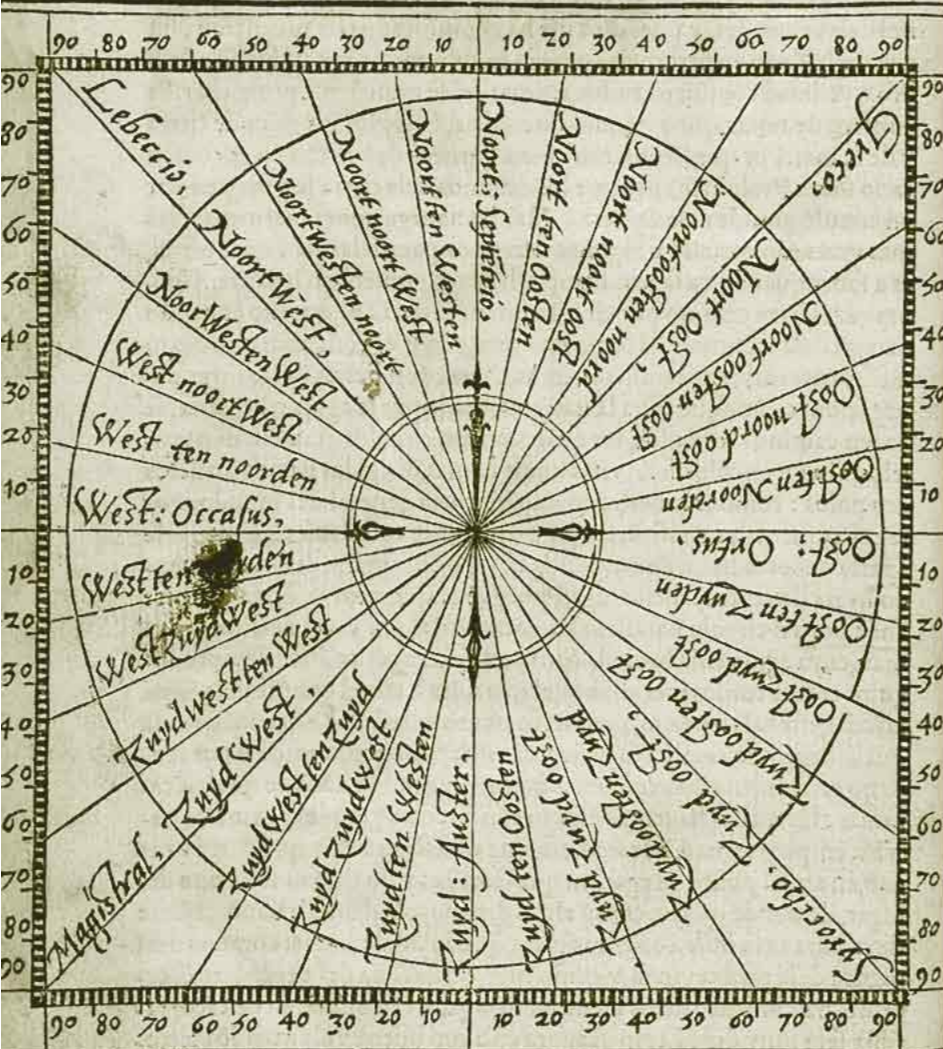 90 80 70 60 50 40 30 20 10 10 20 30 40 50 60 70 80 90
90
80
70
60
50
40
30
20
10
10
20
30
40
50
60
70
80
90
Lebeccio,
Noort: Septẽtrio,
Noort ten Oosten
Noort noort oost
Noortoosten noord
Noort Oost,
Greco.
Noort oosten oost
Oost noord oost
Oosten Noorden
Oost: Ortus,
Oostten Zuyden
Oost Zuyd oost
Zuyd oosten oost
Zuyd oost,
Zuydoosten Zuyd
Zuyd Zuyd oost
Zuyd ten Oosten
Zuyd: Auster,
Zuydten Westen
Zuyd Zuydwest
Zuydwestten Zuyd
Zuyd West,
Zuydwest ten West
West Zuyd West
West ten
West: Occasus,
West ten noorden
West noort West
NoorWesten West
Noort West,
NoortWesten noort
Noort noort West
Noort ten Westen
Magistral,
90
80
70
60
50
40
30
20
10
10
20
30
40
50
60
70
80
90
90 80 70 60 50 40 30 20 10 10 20 30 40 50 60 70 80 90